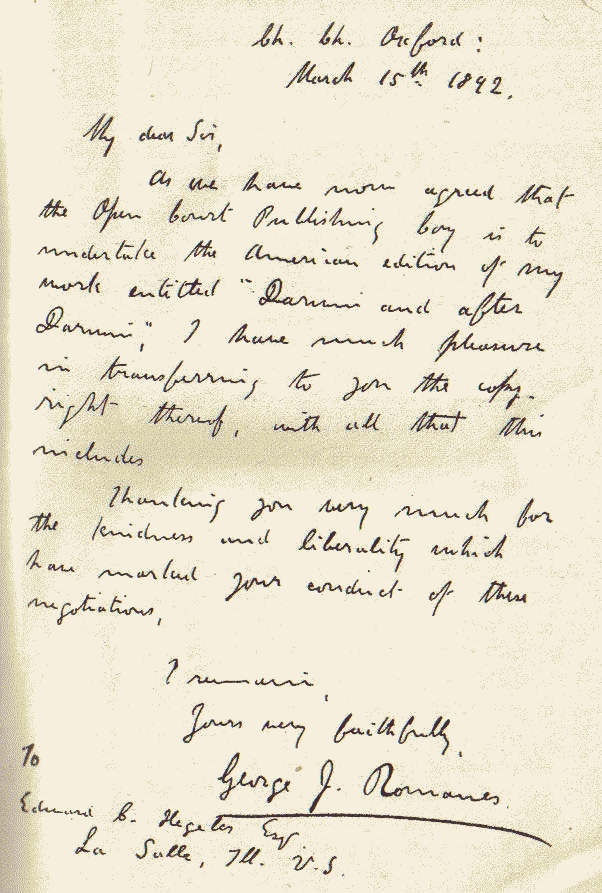 Ch. Ch. Oxford:
March 15th 1892.
My dear Sir,
As we have now agreed that
the Open Court Publishing Coy is to
undertake the American edition of my
work entitled "Darwin and after
Darwin", I have much pleasure
in transferring to you the copy-
right thereof, with all that this
includes
Thanking you very much for
the kindness and liberality which
have marked your conduct of these
negotiations,
I remain,
Yours very faithfully,
George J. Romanes.
To
Edward C. Hegeler Esq
La Salle, Ill. U.S.